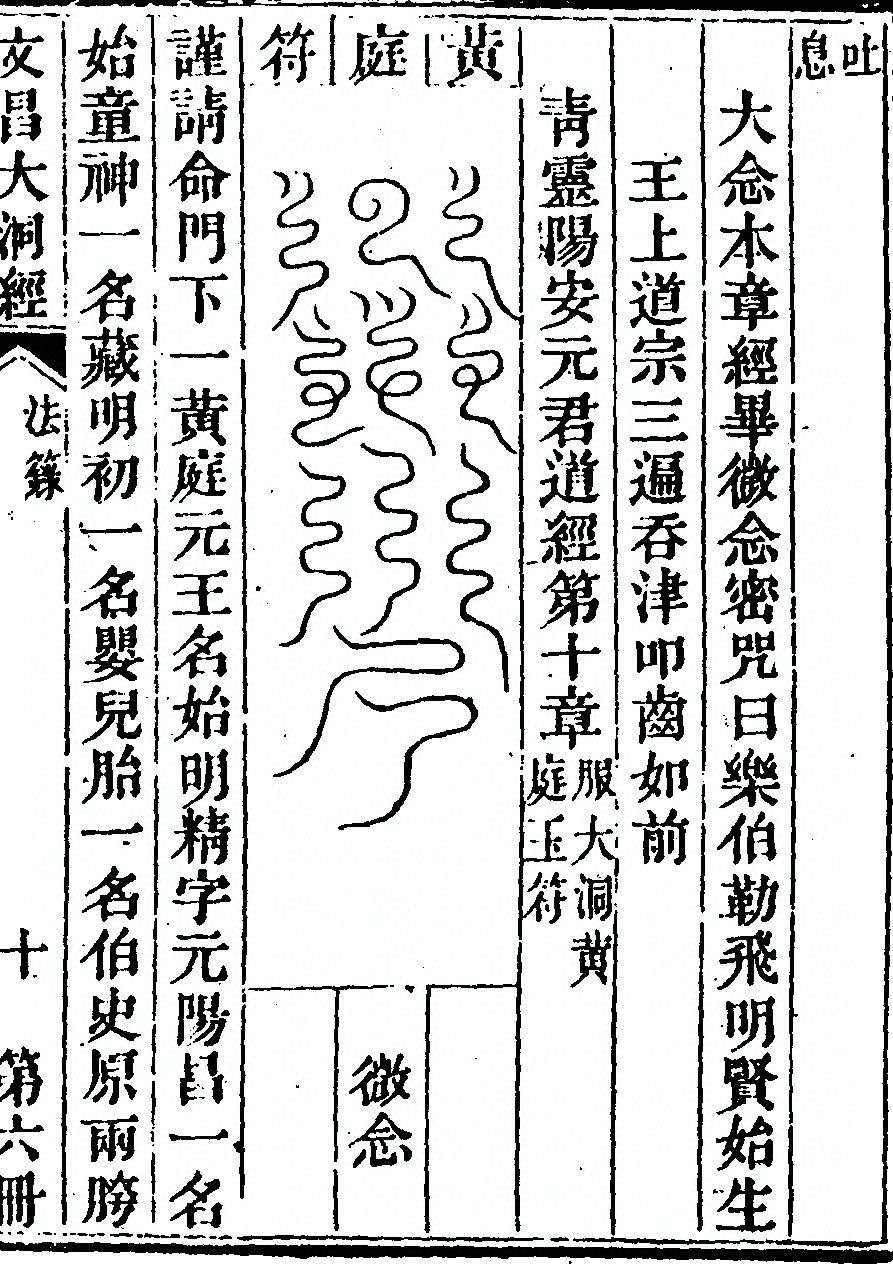 吐息
大念本章經畢微念密咒曰樂伯勒飛明賢始生
王上道宗三遍吞津叩齒如前
青靈陽安元君道經第十章服大洞黃庭玉符
黃庭符
微念
謹請命門下一黃庭元王名始明精字元陽昌一名
始童神一名藏明初一名嬰兒胎一名伯史原兩腾
文昌大洞經 法籙 十 第六冊